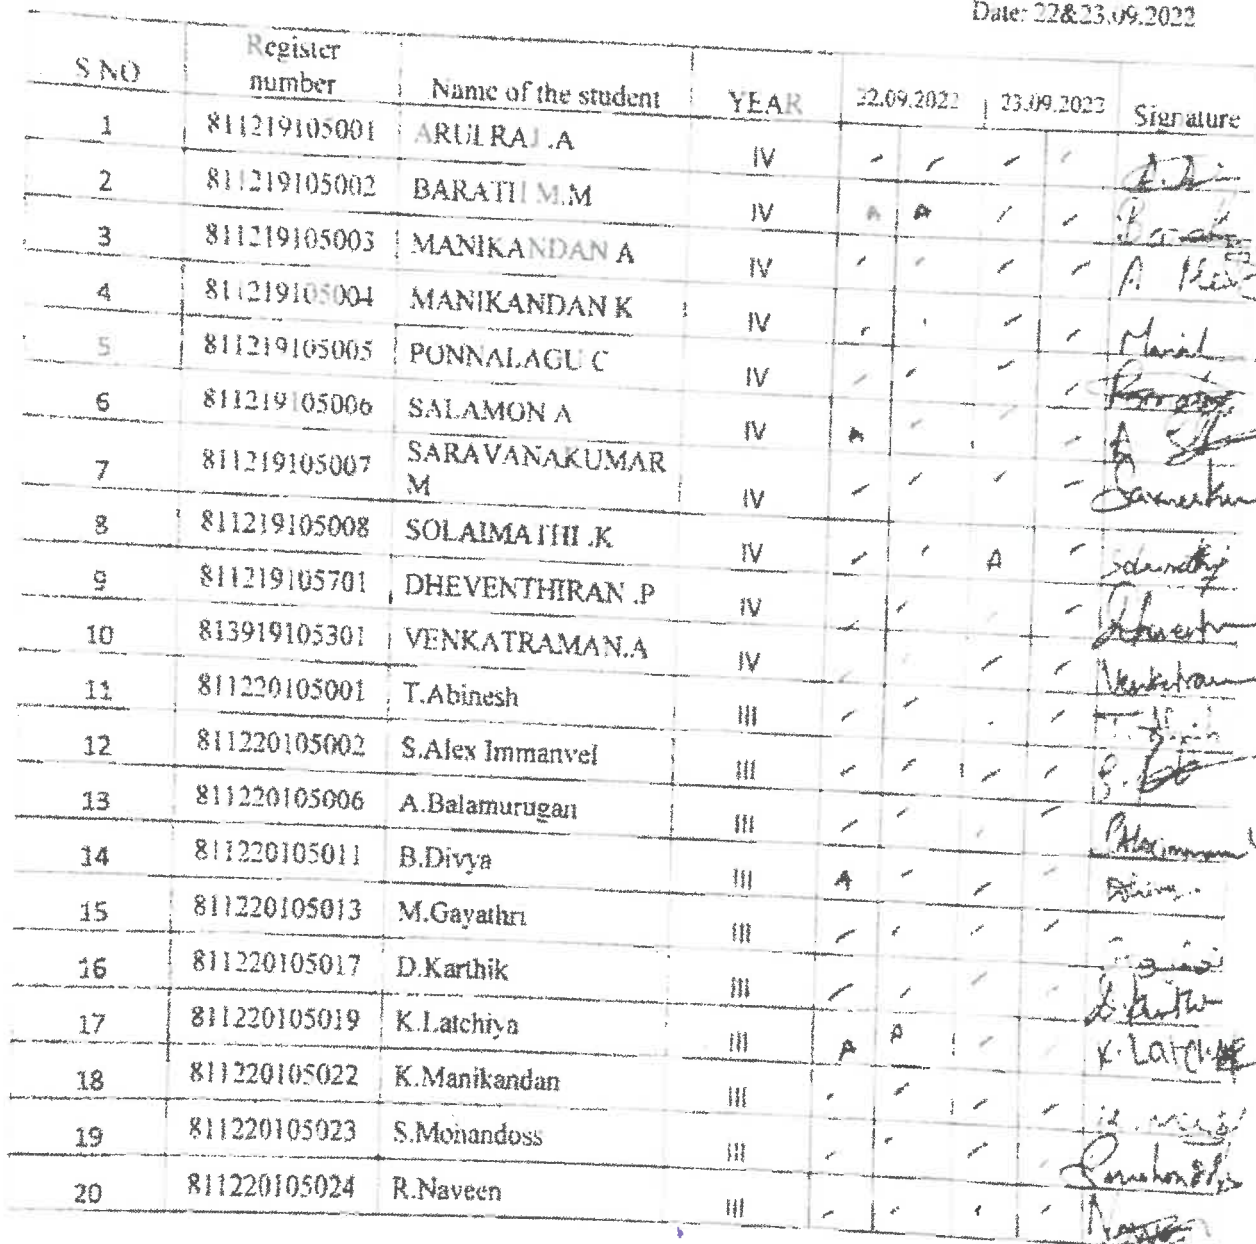 Date: 22&23.09.2022
S NO Register number Name of the student YEAR 22.09.2022 23.09.2022 Signature
1 811219105001 ARULRAJ .A IV
2 811219105002 BARATH M.M IV A A
3 811219105003 MANIKANDAN A IV
4 811219105004 MANIKANDAN K IV
5 811219105005 PONNALAGU C IV
6 811219105006 SALAMON A IV A
7 811219105007 SARAVANAKUMAR M IV
8 811219105008 SOLAIMATHI .K IV A
9 811219105701 DHEVENTHIRAN .P IV
10 813919105301 VENKATRAMAN.A IV
11 811220105001 T.Abinesh III
12 811220105002 S.Alex Immanvel III
13 811220105006 A.Balamurugan III
14 811220105011 B.Divya III A
15 811220105013 M.Gayathri III
16 811220105017 D.Karthik III
17 811220105019 K.Latchiya III A A
18 811220105022 K.Manikandan III
19 811220105023 S.Mohandoss III
20 811220105024 R.Naveen III